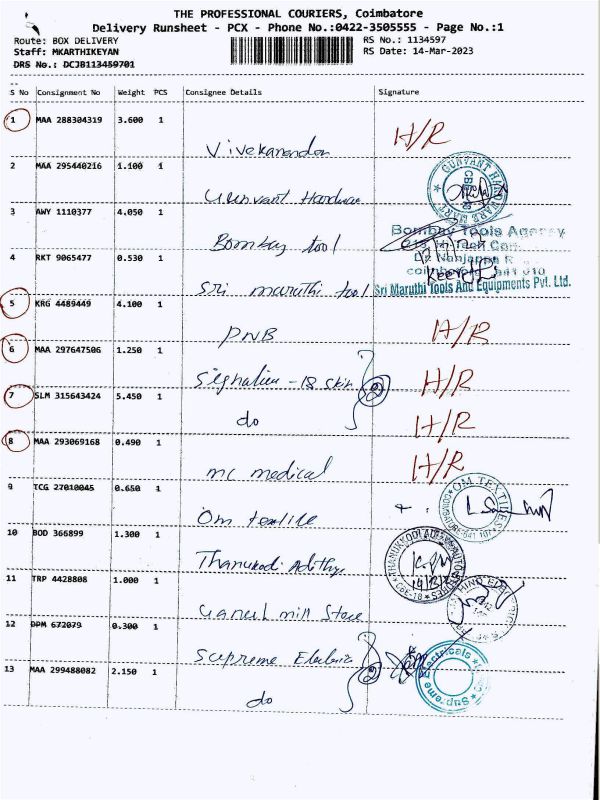 THE PROFESSIONAL COURIERS, Coimbatore
Delivery Runsheet - PCX - Phone No.:0422-3505555 - Page No.:1
Route: BOX DELIVERY RS No.: 1134597
Staff: MKARTHIKEYAN RS Date: 14-Mar-2023
DRS No.: DCJB113459701
S No Consignment No Weight PCS Consignee Details Signature
1 MAA 288304319 3.600 1 H/R
Vivekanandan
2 MAA 295440216 1.100 1 GUNVANT HARDWARE MART
Gunvant Hardware
3 AWY 1110377 4.050 1 Bombay Tools Agency
Bombay tool
4 RKT 9065477 0.530 1
Sri maruthi tool Sri Maruthi Tools And Equipments Pvt. Ltd.
5 KRG 4489449 4.100 1 H/R
PNB
6 MAA 297647506 1.250 1 H/R
Signature - 18 skin 2
7 SLM 315643424 5.450 1 H/R
do
8 MAA 293069168 0.490 1 H/R
mc medical
9 TCG 27010045 0.650 1 OM TEXTILES
Om textile
10 BOD 366899 1.300 1
Thanukodi Adithya
11 TRP 4428808 1.000 1
Ganul mill Store
12 DPM 672079 0.300 1
Supreme Electric 2 Supreme Electricals
13 MAA 299488082 2.150 1
do